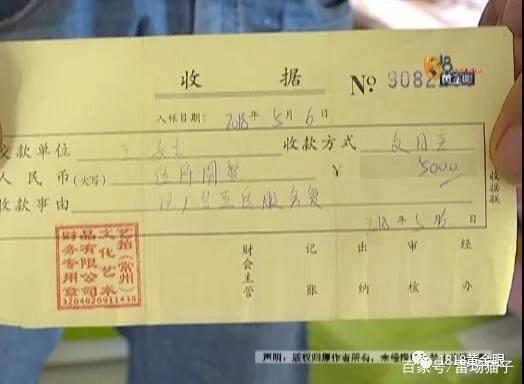 收 据 № 3082
入帐日期: 2018 年 5 月 6 日
交款单位 王女士 收款方式
人民币(大写) 伍仟圆整 ¥ 5000
收款事由 服务费
2018 年 5 月 日
收据联
财会主管 记账 出纳 审核 经办
艺拍(常州)
文化艺术
品有限公司
财务专用章
3204020911438
声明: 版权归原作者所有, 未经
1818黄金眼
百家号/雷场猫子